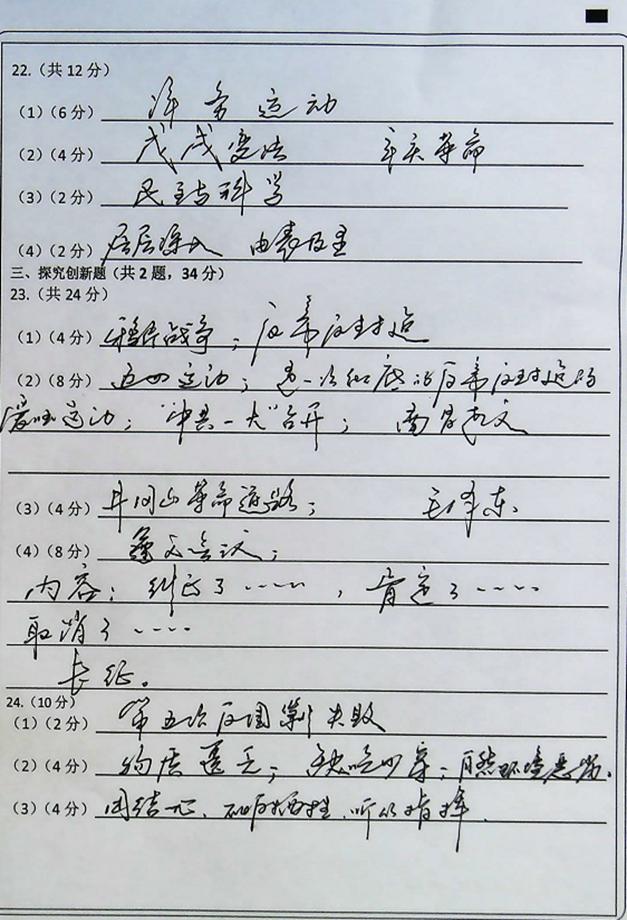 22.（共 12 分）
（1）（6 分） 洋务运动
（2）（4 分） 戊戌变法 辛亥革命
（3）（2 分） 民主与科学
（4）（2 分） 层层深入 由表及里
三、探究创新题（共 2 题，34 分）
23.（共 24 分）
（1）（4 分） 鸦片战争；反帝反封建
（2）（8 分） 五四运动；是一次彻底的反帝反封建的
爱国运动；“中共一大”召开；南昌起义
（3）（4 分） 井冈山革命道路； 毛泽东.
（4）（8 分） 遵义会议；
内容：纠正了……，肯定了……
取消了……
长征。
24.（10 分）
（1）（2 分） 第五次反围剿失败
（2）（4 分） 物质匮乏；缺吃少穿；自然环境恶劣.
（3）（4 分） 团结一心、不怕牺牲、听从指挥.